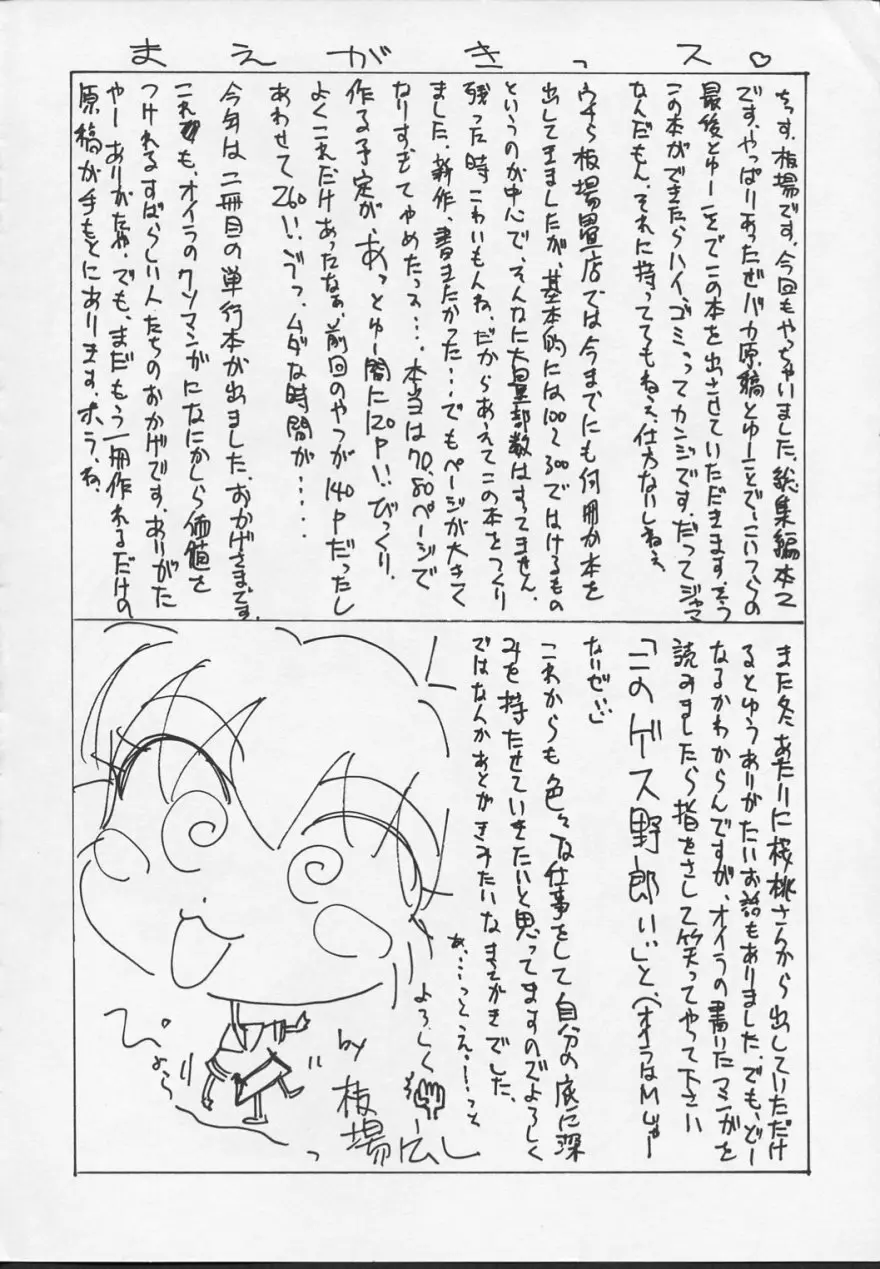 まえがきっス♡
ちっす、板場です。今回もやっちゃいました、総集編本て
です、やっぱりあったぜバカ原稿とゆーことで、こいつらの
最後とゆーことでこの本を出させていただきます。そう
この本ができたらハイ、ゴミってカンジです。だってジャマ
なんだもん、それに持っててもねぇ、仕方ないしねぇ
うちら板場畳店では今までにも何冊か本を
出してきましたが、基本的には100〜300ではけるもの
というのが中心で、そんなに大量部数はすってません。
残った時こわいもんね、だからあえてこの本をつくり
ました、新作、書きたかった…でもページが大きく
なりすぎてやめたっス…。本当は70,80ページで
作る予定が、あっとゆー間に120P!!びっくり。
よくこれだけあったなぁ、前回のやつが140Pだったし
あわせて260!!、ムダな時間が・・・・・
今年は二冊目の単行本が出ました、おかげさまです。
これも、オイラのクソマンガになにかしら価値を
つけれるすばらしい人たちのおかげです。ありがた
やーありがたや、でも、まだもう一冊作れるだけの
原稿が手もとにあります。ホラ、ね、
また冬あたりに桜桃さんから出していただけ
るとゆうありがたいお話もありました、でも、どー
なるかわからんですが、オイラの書いたマンガを
読みましたら指をさして笑ってやって下さい
「このゲス野郎!!」と
ないぜ!!
これからも色々な仕事をして自分の底に深
みを持たせていきたいと思ってますのでよろしく
ではなんかあとがきみたいなまえがきでした。
あ、…っとえー!っと
よろしく
by 板場広し
っ